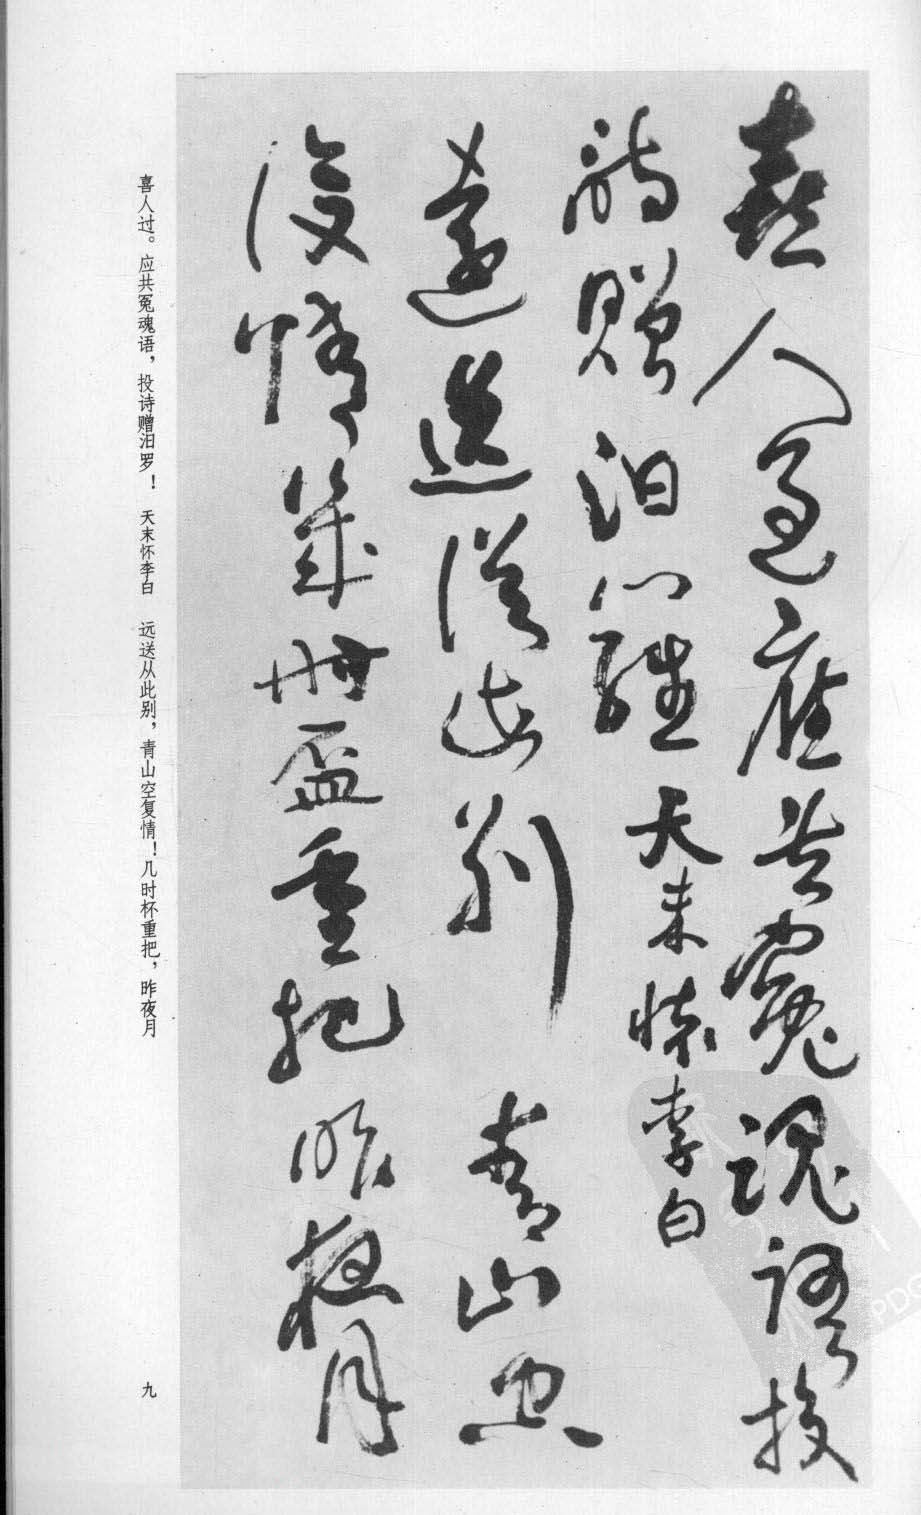 喜人過應共冤魂語投
詩贈汨羅天末懷李白
遠送從此別青山空
復情幾時盃重把昨夜月
喜人过。应共冤魂语，投诗赠汨罗！ 天末怀李白 远送从此别，青山空复情！几时杯重把，昨夜月
九